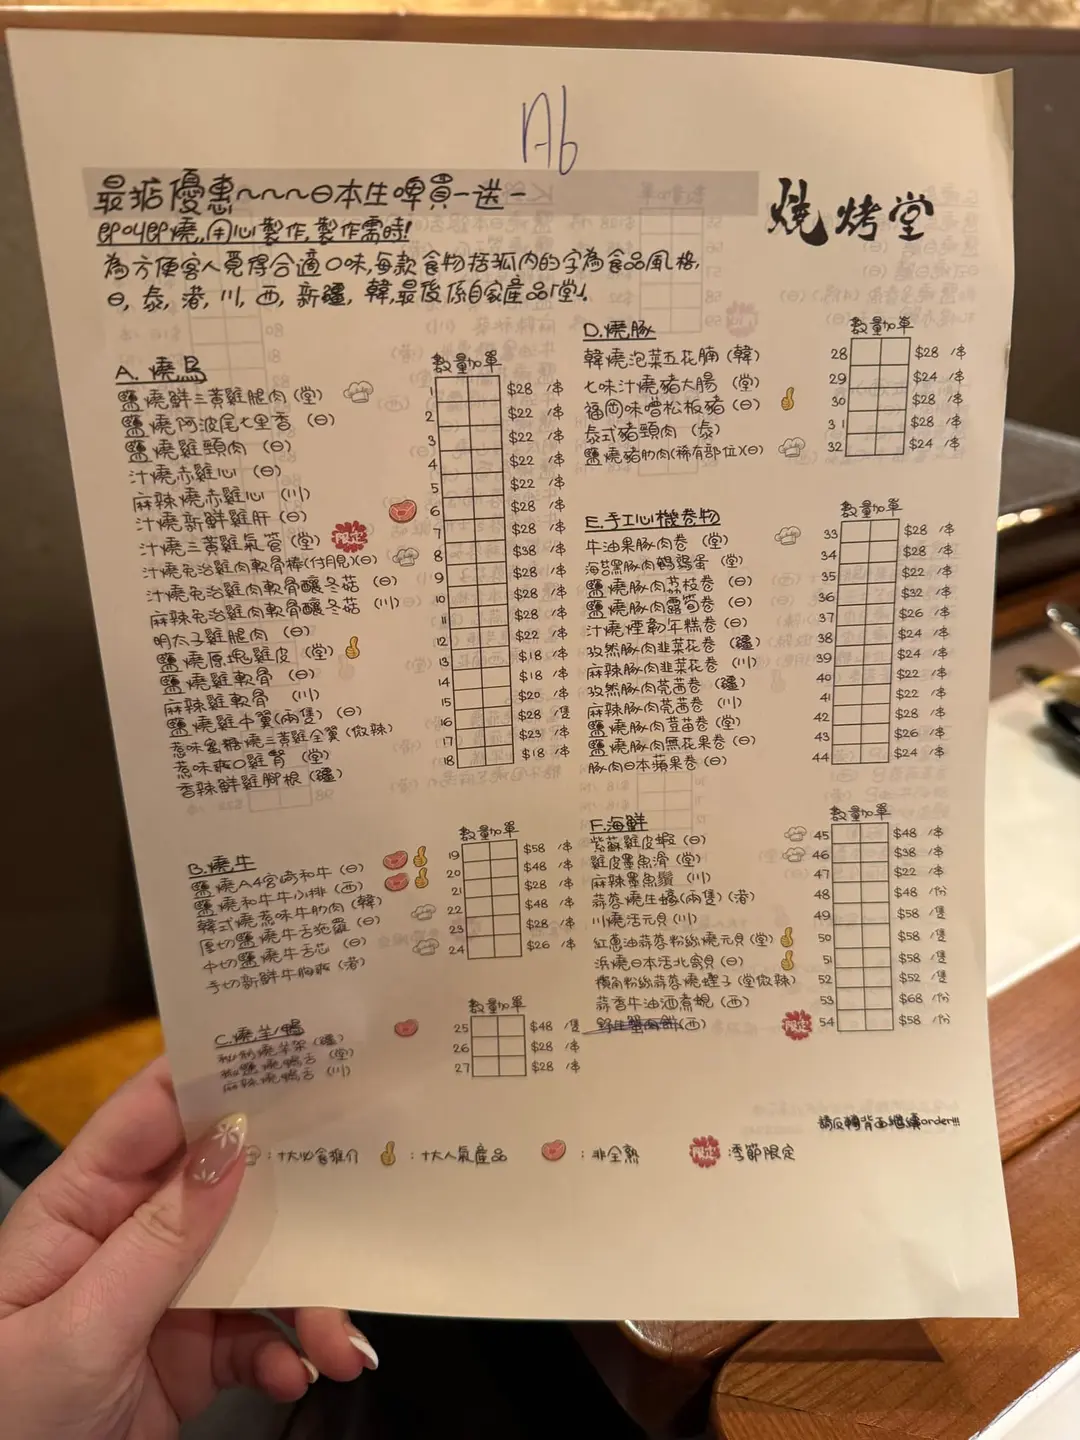 A6
最掂優惠~~~日本生啤買一送一
即叫即燒,用心製作,製作需時!
為方便客人覓得合適口味,每款食物括弧内的字為食品風格,
日,泰,港,川,西,新疆,韓,最後係自家產品「堂」。
燒烤堂
A. 燒鳥 數量加單
鹽燒鮮三黃雞腿肉(堂) $28 /串
鹽燒阿波尾七里香(日) 2 $22 /串
鹽燒雞頸肉(日) 3 $22 /串
汁燒赤雞心(日) 4 $22 /串
麻辣燒赤雞心(川) 5 $22 /串
汁燒新鮮雞肝(日) 6 $28 /串
汁燒三黃雞氣管(堂) 限定 7 $28 /串
汁燒免治雞肉軟骨棒(付月見)(日) 8 $38 /串
汁燒免治雞肉軟骨釀冬菇(日) 9 $28 /串
麻辣免治雞肉軟骨釀冬菇(川) 10 $28 /串
明太子雞腿肉(日) 11 $28 /串
鹽燒原塊雞皮(堂) 12 $22 /串
鹽燒雞軟骨(日) 13 $18 /串
麻辣雞軟骨(川) 14 $18 /串
鹽燒雞中翼(兩隻)(日) 15 $20 /串
惹味蜜糖燒三黃雞全翼(微辣) 16 $28 /隻
惹味爽口雞腎(堂) 17 $23 /串
香辣鮮雞腳根(疆) 18 $18 /串
B. 燒牛 數量加單
鹽燒A4宮崎和牛(日) 19 $58 /串
鹽燒和牛牛小排(西) 20 $48 /串
韓式燒惹味牛肋肉(韓) 21 $28 /串
厚切鹽燒牛舌拖羅(日) 22 $48 /串
中切鹽燒牛舌芯(日) 23 $28 /串
手切新鮮牛胸爽(港) 24 $26 /串
C. 燒羊/鴨 數量加單
燒羊架(疆) 25 $48 /隻
鹽燒鴨舌(堂) 26 $28 /串
麻辣燒鴨舌(川) 27 $28 /串
D. 燒豚 數量加單
韓燒泡菜五花腩(韓) 28 $28 /串
七味汁燒豬大腸(堂) 29 $24 /串
福岡味噌松板豬(日) 30 $28 /串
泰式豬頸肉(泰) 31 $28 /串
鹽燒豬肋肉(稀有部位)(日) 32 $24 /串
E. 手工心機卷物 數量加單
牛油果豚肉卷(堂) 33 $28 /串
海苔黑豚肉鵪鶉蛋(堂) 34 $28 /串
鹽燒豚肉荔枝卷(日) 35 $22 /串
鹽燒豚肉露筍卷(日) 36 $32 /串
汁燒煙韌年糕卷(日) 37 $26 /串
孜然豚肉韭菜花卷(疆) 38 $24 /串
麻辣豚肉韭菜花卷(川) 39 $24 /串
孜然豚肉芫茜卷(疆) 40 $22 /串
麻辣豚肉芫茜卷(川) 41 $22 /串
鹽燒豚肉荳苗卷(堂) 42 $28 /串
鹽燒豚肉無花果卷(日) 43 $26 /串
豚肉日本蘋果卷(日) 44 $24 /串
F. 海鮮 數量加單
紫蘇雞皮蝦(日) 45 $48 /串
雞皮墨魚滑(堂) 46 $38 /串
麻辣墨魚鬚(川) 47 $22 /串
蒜蓉燒生蠔(兩隻)(港) 48 $48 /份
川燒活元貝(川) 49 $58 /隻
紅蔥油蒜蓉粉絲燒元貝(堂) 50 $58 /隻
浜燒日本活北寄貝(日) 51 $58 /隻
欖角粉絲蒜蓉燒蟶子(堂微辣) 52 $52 /隻
蒜香牛油酒煮蜆(西) 53 $68 /份
野生蟹肉餅(西) 限定 54 $58 /份
請反轉背面繼續order!!!
:十大必食推介 :十大人氣產品 :非全熟 限定 季節限定